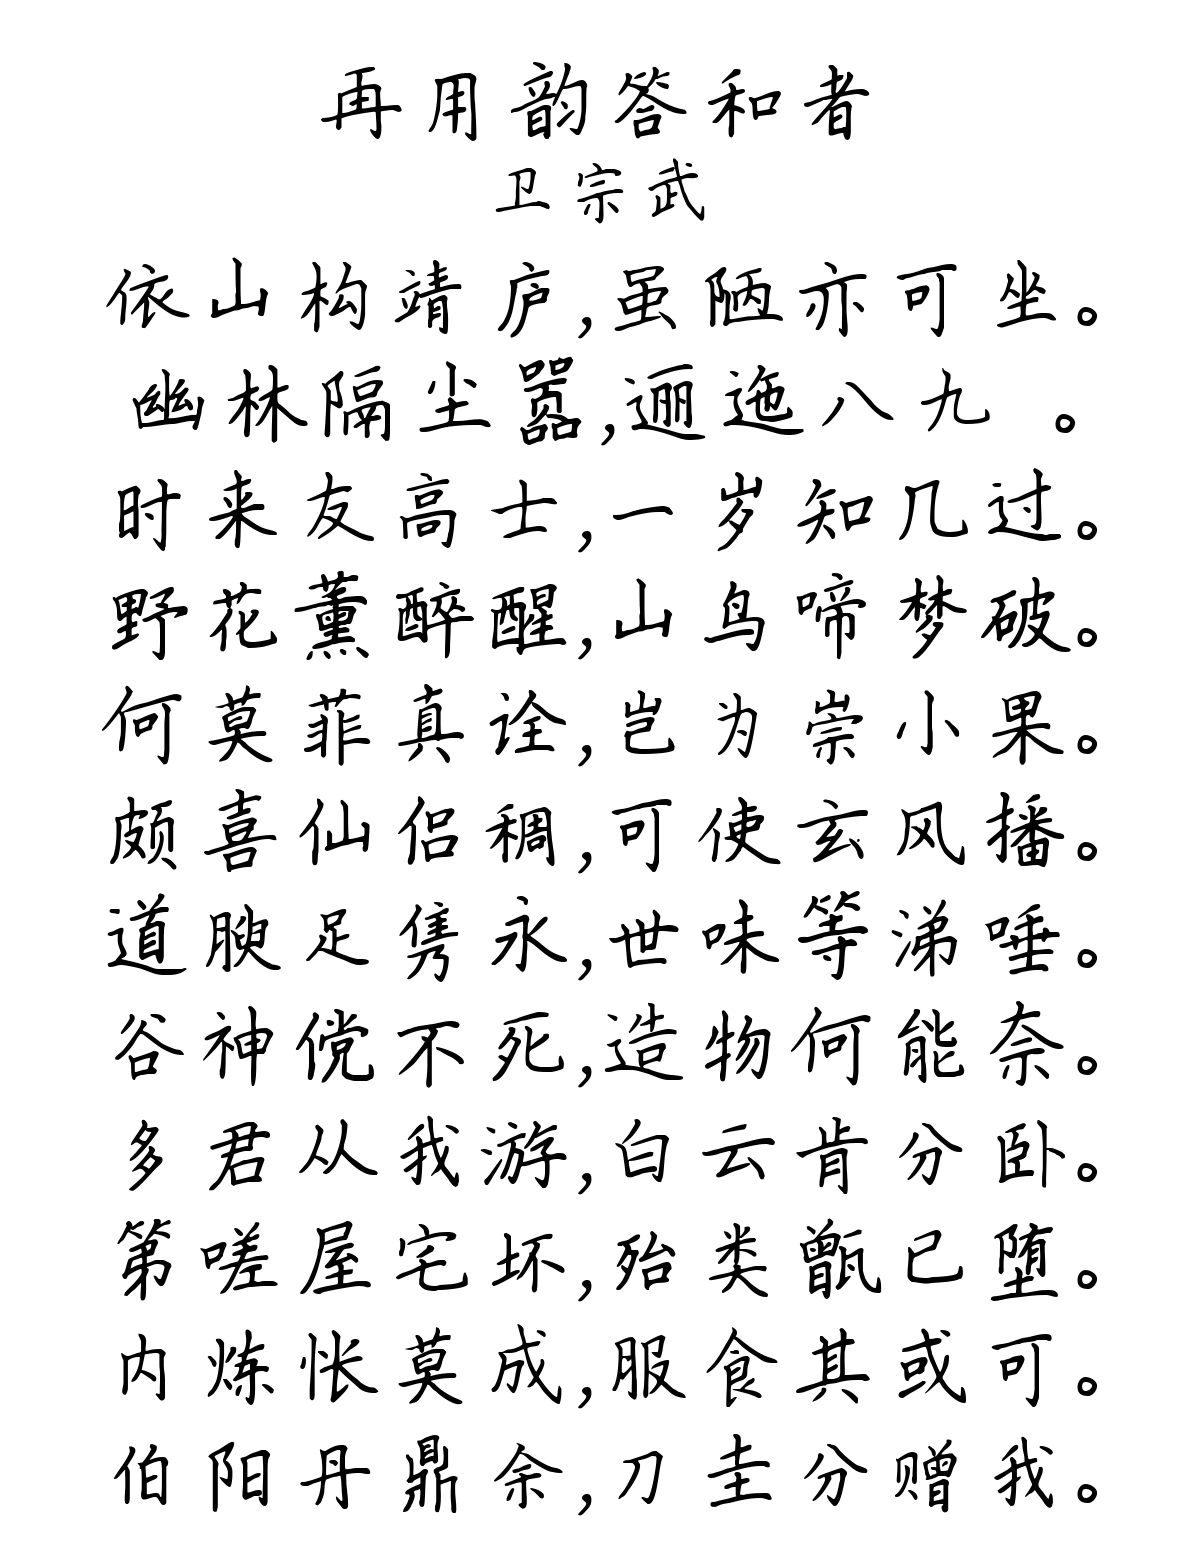 再用韵答和者
卫宗武
依山构靖庐,虽陋亦可坐。
幽林隔尘嚣,逦迤八九 。
时来友高士,一岁知几过。
野花薰醉醒,山鸟啼梦破。
何莫菲真诠,岂为崇小果。
颇喜仙侣稠,可使玄风播。
道腴足隽永,世味等涕唾。
谷神傥不死,造物何能奈。
多君从我游,白云肯分卧。
第嗟屋宅坏,殆类甑已堕。
内炼怅莫成,服食其或可。
伯阳丹鼎余,刀圭分赠我。